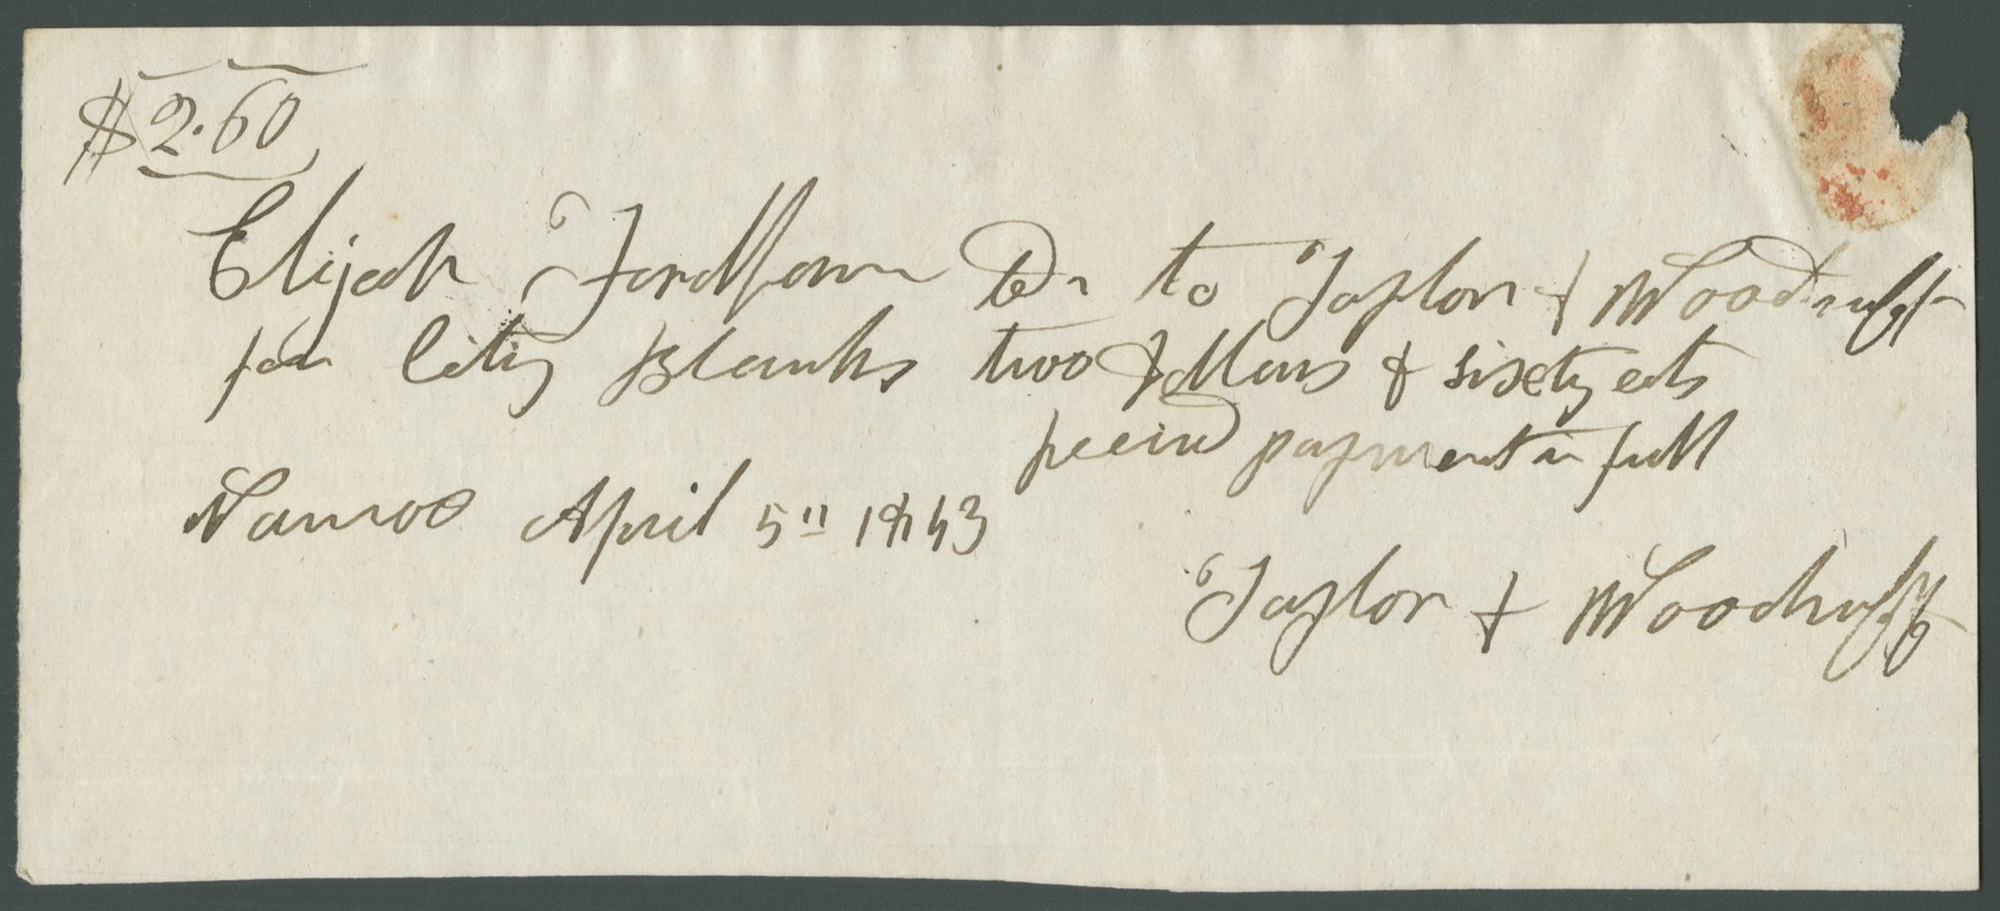 $2.60
Elijah Fordham Dr to Taylor & Woodruff
for City Blanks two dollars & sixety cts
Receivd payment in full
Nauvoo April 5" 1843
Taylor & Woodruff